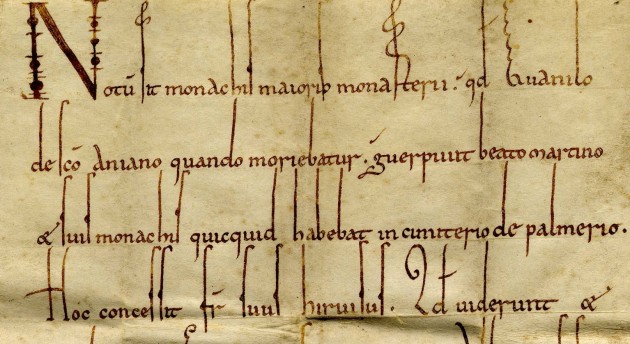 Notū sit monachis maioris monasterii. qd̄ Guanilo
de sc̄o Aniano quando moriebatur. guerpiuit beato martino
& suis monachis quicquid habebat in cimiterio de palmerio.
Hoc concessit fr̄ suus hiruisus. Id uiderunt &